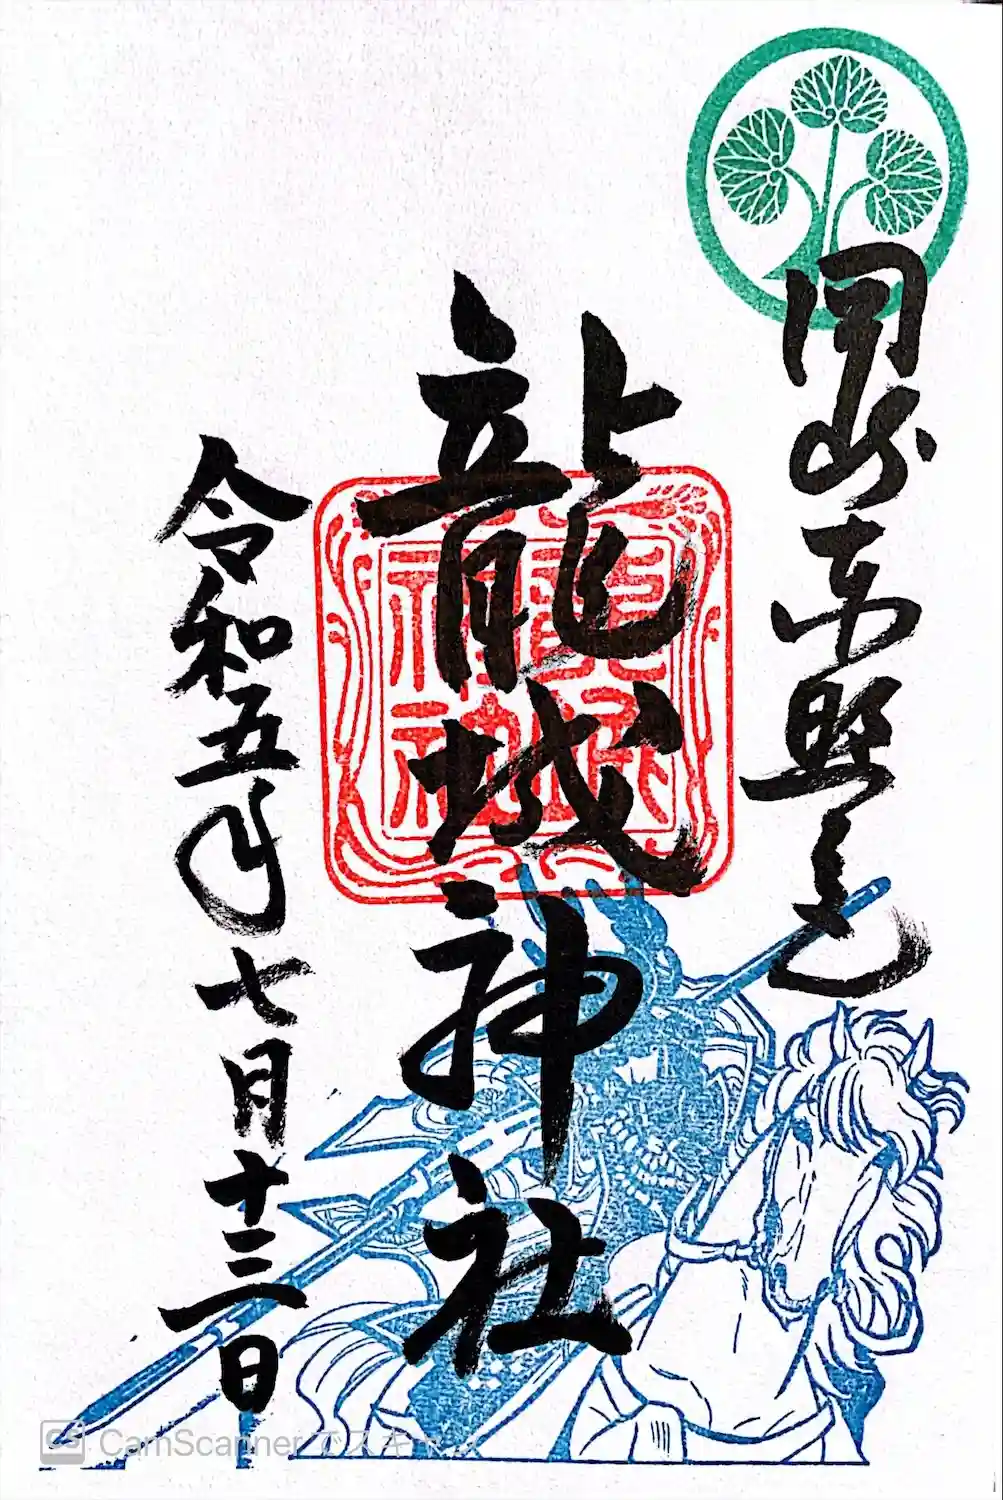 岡崎東照宮
龍城神社
令和五年七月十三日
龍城神社
CamScannerでスキャン